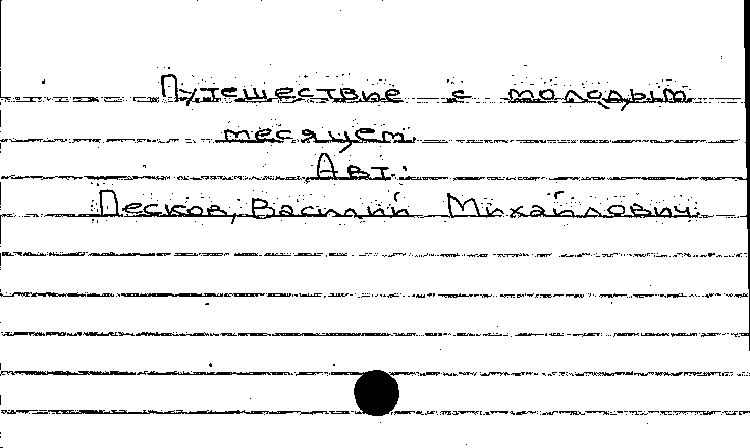 Путешествие с молодым
месяцем.
Авт.:
Песков, Василий Михайлович.